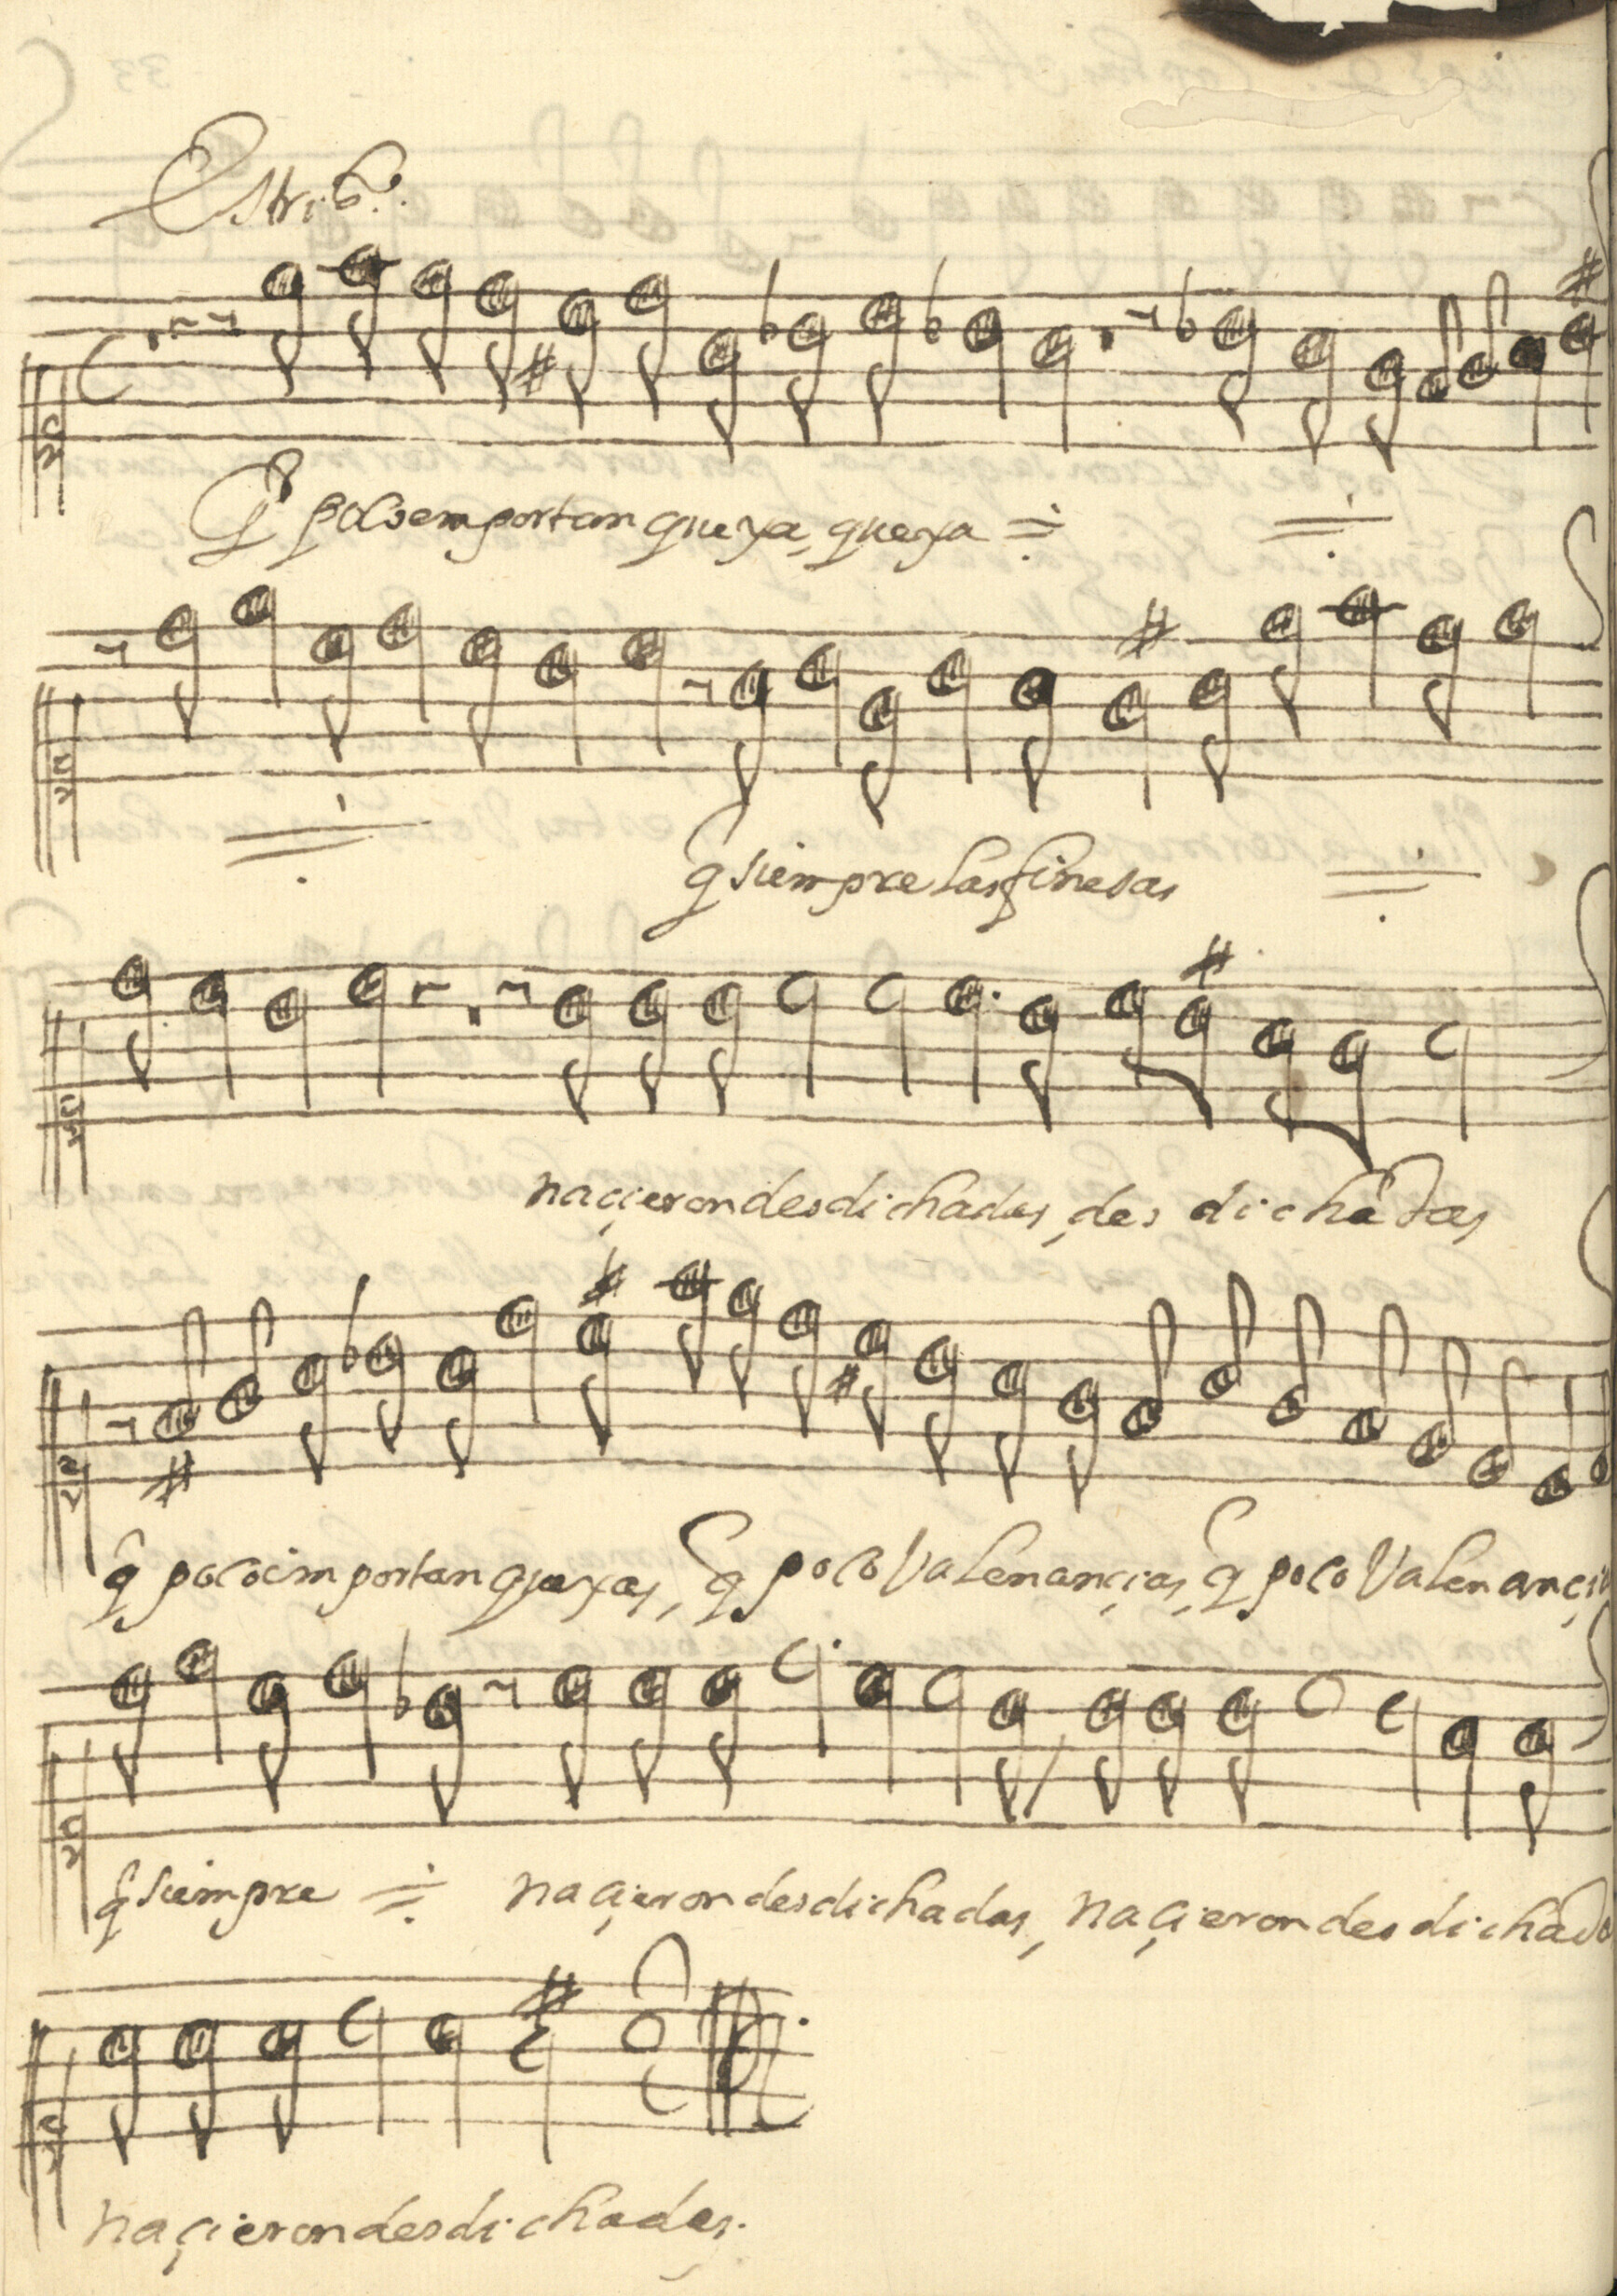 Estribo.
Q̃ pocoemportan quexa, quexa
q̃ siempre las finesas
naçieron desdichadas, des dichadas
q̃ poco importan quexas, q̃ poco Valen ançias, q̃ poco Valen ançia
q̃ siempre naçieron desdichadas, naçieron desdichado
naçieron desdichadas.